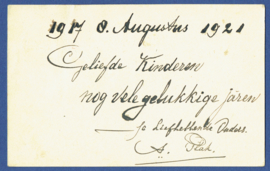 1917 8. Augustus 1921
Geliefde Kinderen
nog vele gelukkige jaren
Je Liefhebbende Ouders.
A.